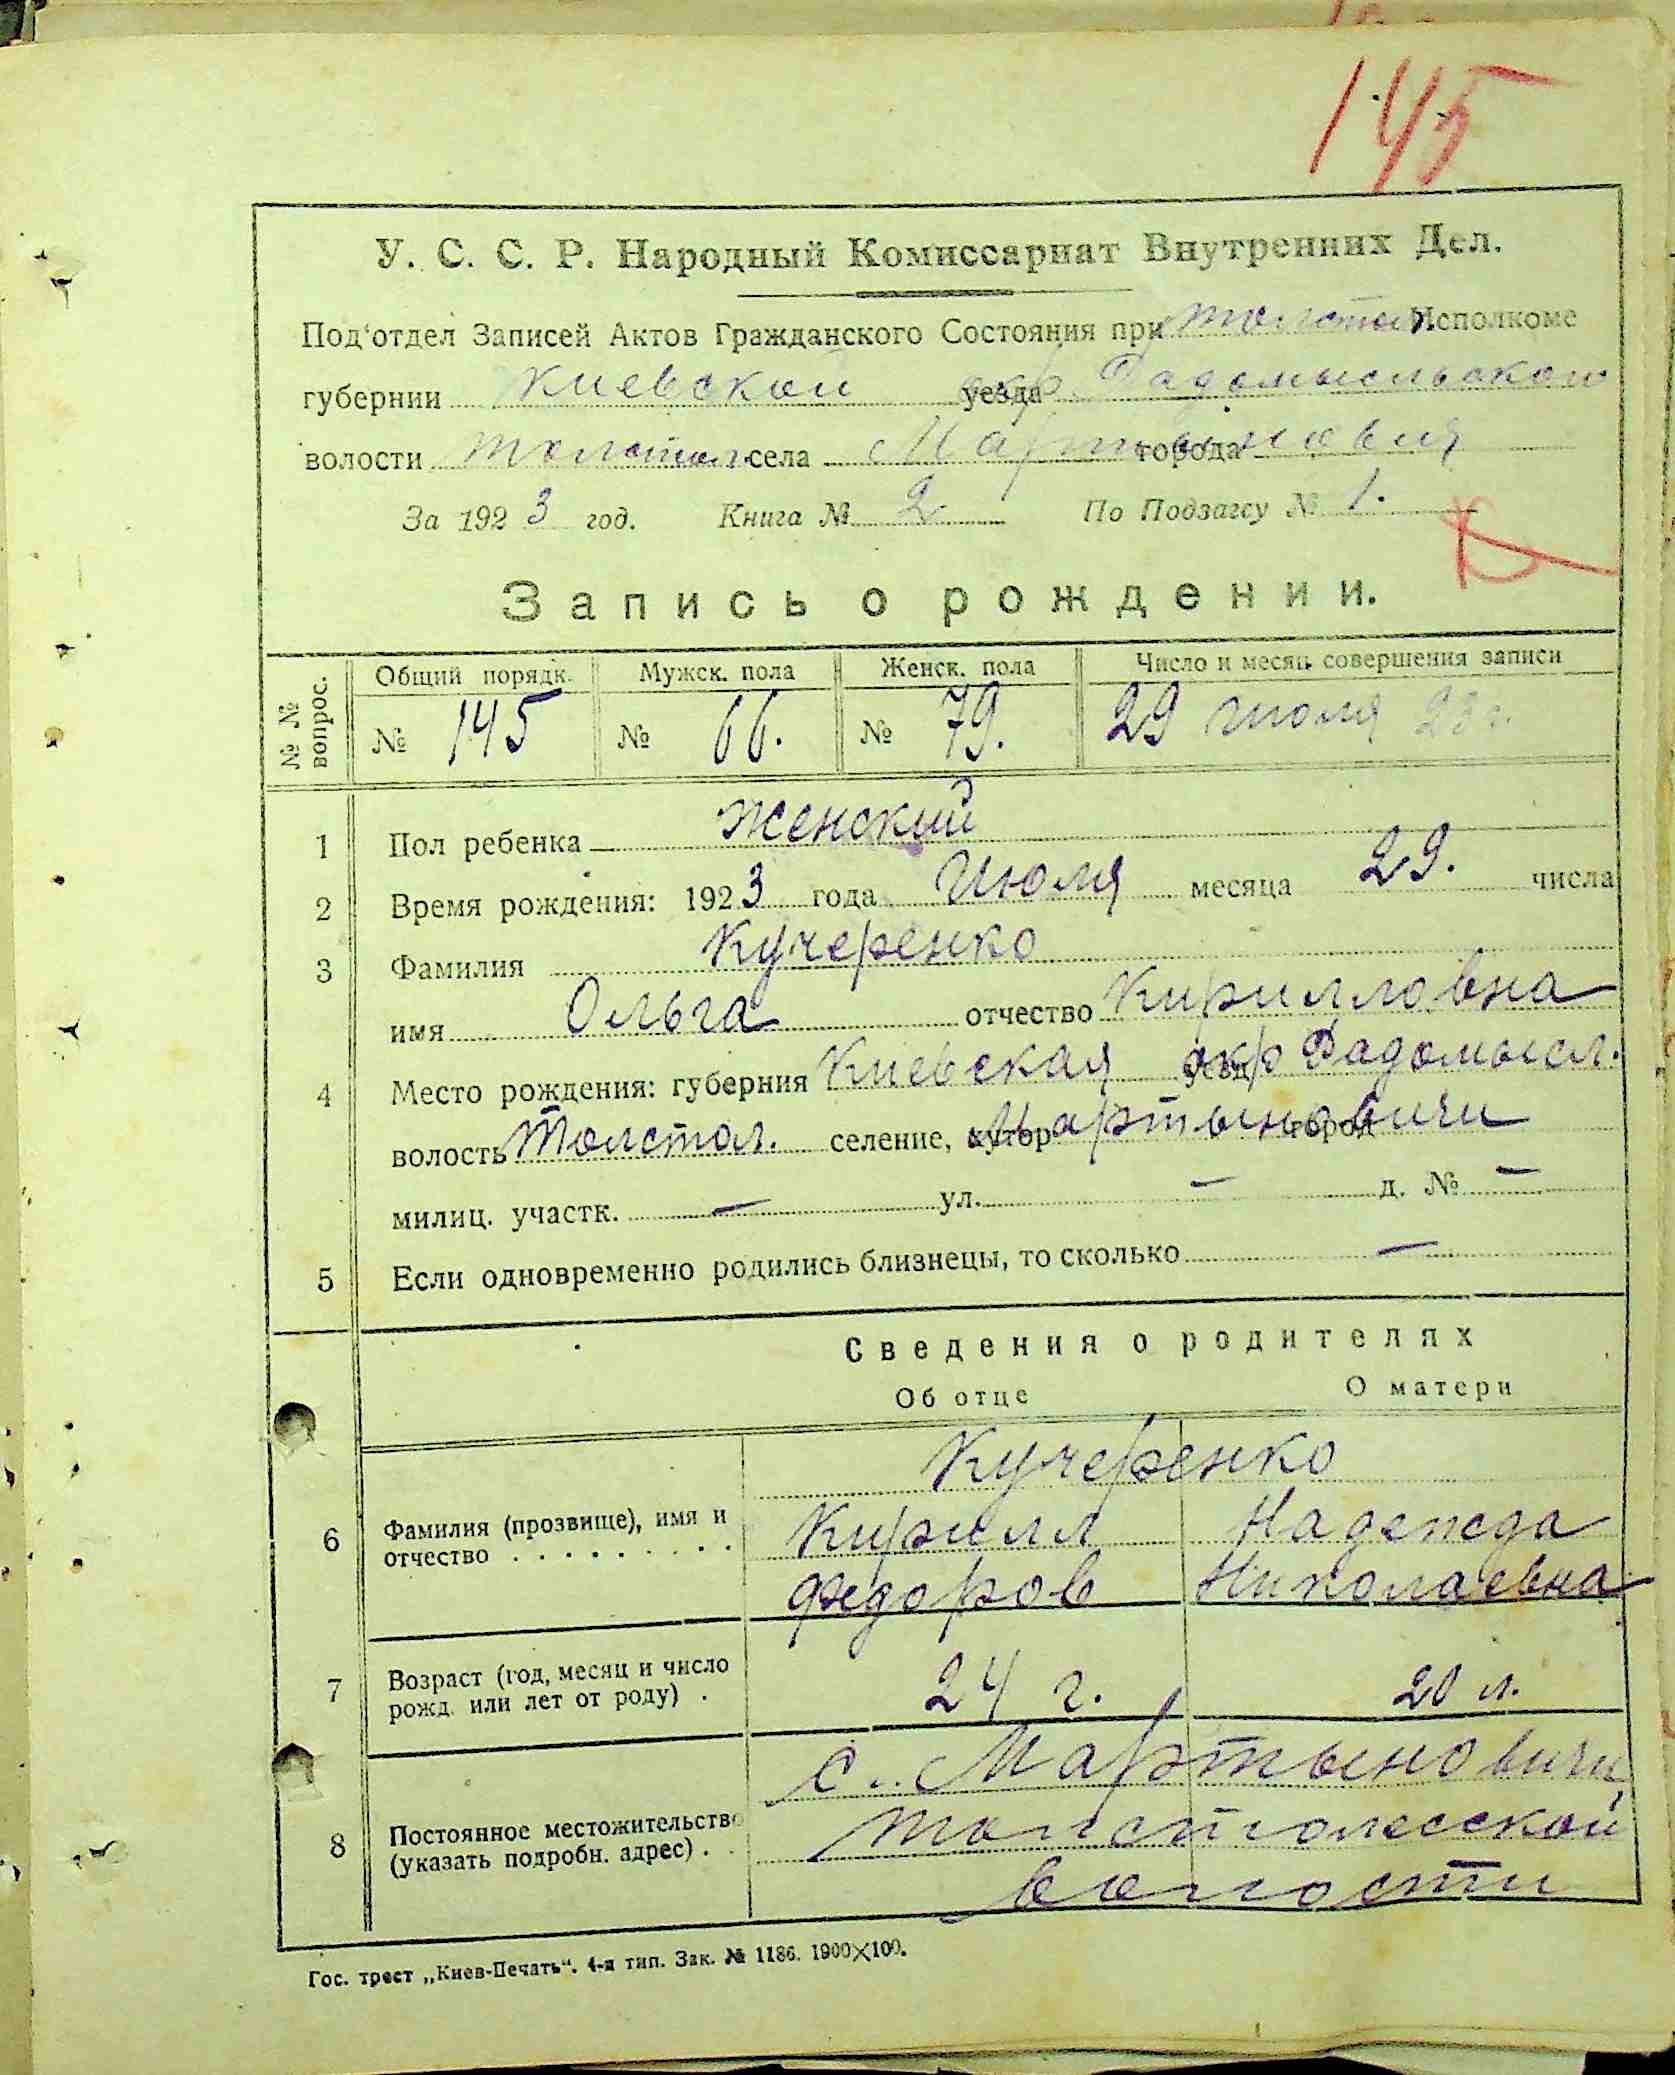 145
У. С. С. Р. Народный Комиссариат Внутренних Дел.
Под‘отдел Записей Актов Гражданского Состояния при Толстол. Исполкоме
губернии Киевской уезда окр. Радомысльского
волости Толстол. села Мартыновичи города
За 1923 год. Книга № 2 По Подзагсу № 1.
Запись о рождении.
№ № вопрос.
Общий порядк. Мужск. пола Женск. пола Число и месяц совершения записи
№ 145 № 66. № 79. 29 Июля 23 г.
1 Пол ребенка Женский
2 Время рождения: 1923 года Июля месяца 29. числа
3 Фамилия Кучеренко
имя Ольга отчество Кирилловна
4 Место рождения: губерния Киевская уезд окр Радомысл.
волость Толстол. селение, хутор Мартыновичи город
милиц. участк. — ул. — д. № —
5 Если одновременно родились близнецы, то сколько —
Сведения о родителях
Об отце О матери
Кучеренко
6 Фамилия (прозвище), имя и Кирилл Надежда
отчество . . . . . . . . . Федоров Николаевна
7 Возраст (год, месяц и число
рожд. или лет от роду) . 24 г. 20 л.
с. Мартыновичи
8 Постоянное местожительство Толстолесской
(указать подробн. адрес) . . волости
Гос. трест „Киев-Печать“. 4-я тип. Зак. № 1186. 1900×100.